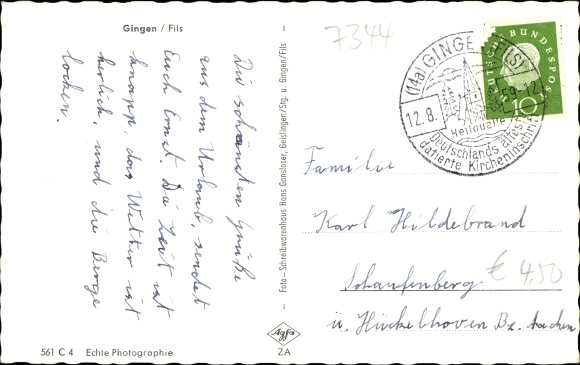 Gingen / Fils
7344
Die schönsten Grüße
aus dem Urlaub, sendet
Euch Ernst. Die Zeit ist
knapp, das Wetter ist
herlich, und die Berge
locken.
Foto - Schreibwarenhaus Hans Gansloser, Geislingen/Stg. u. Gingen/Fils
(14a) GINGEN (FILS)
12.8.59-12
Heldenle
Deutschlands älteste
datierte Kircheninschrift
DEUTSCHE BUNDESPOST
10
Familie
Karl Hildebrand
Schaufenberg
€ 4,50
ü. Hückelhoven Bz. Aachen
Agfa
561 C 4 Echte Photographie
ZA